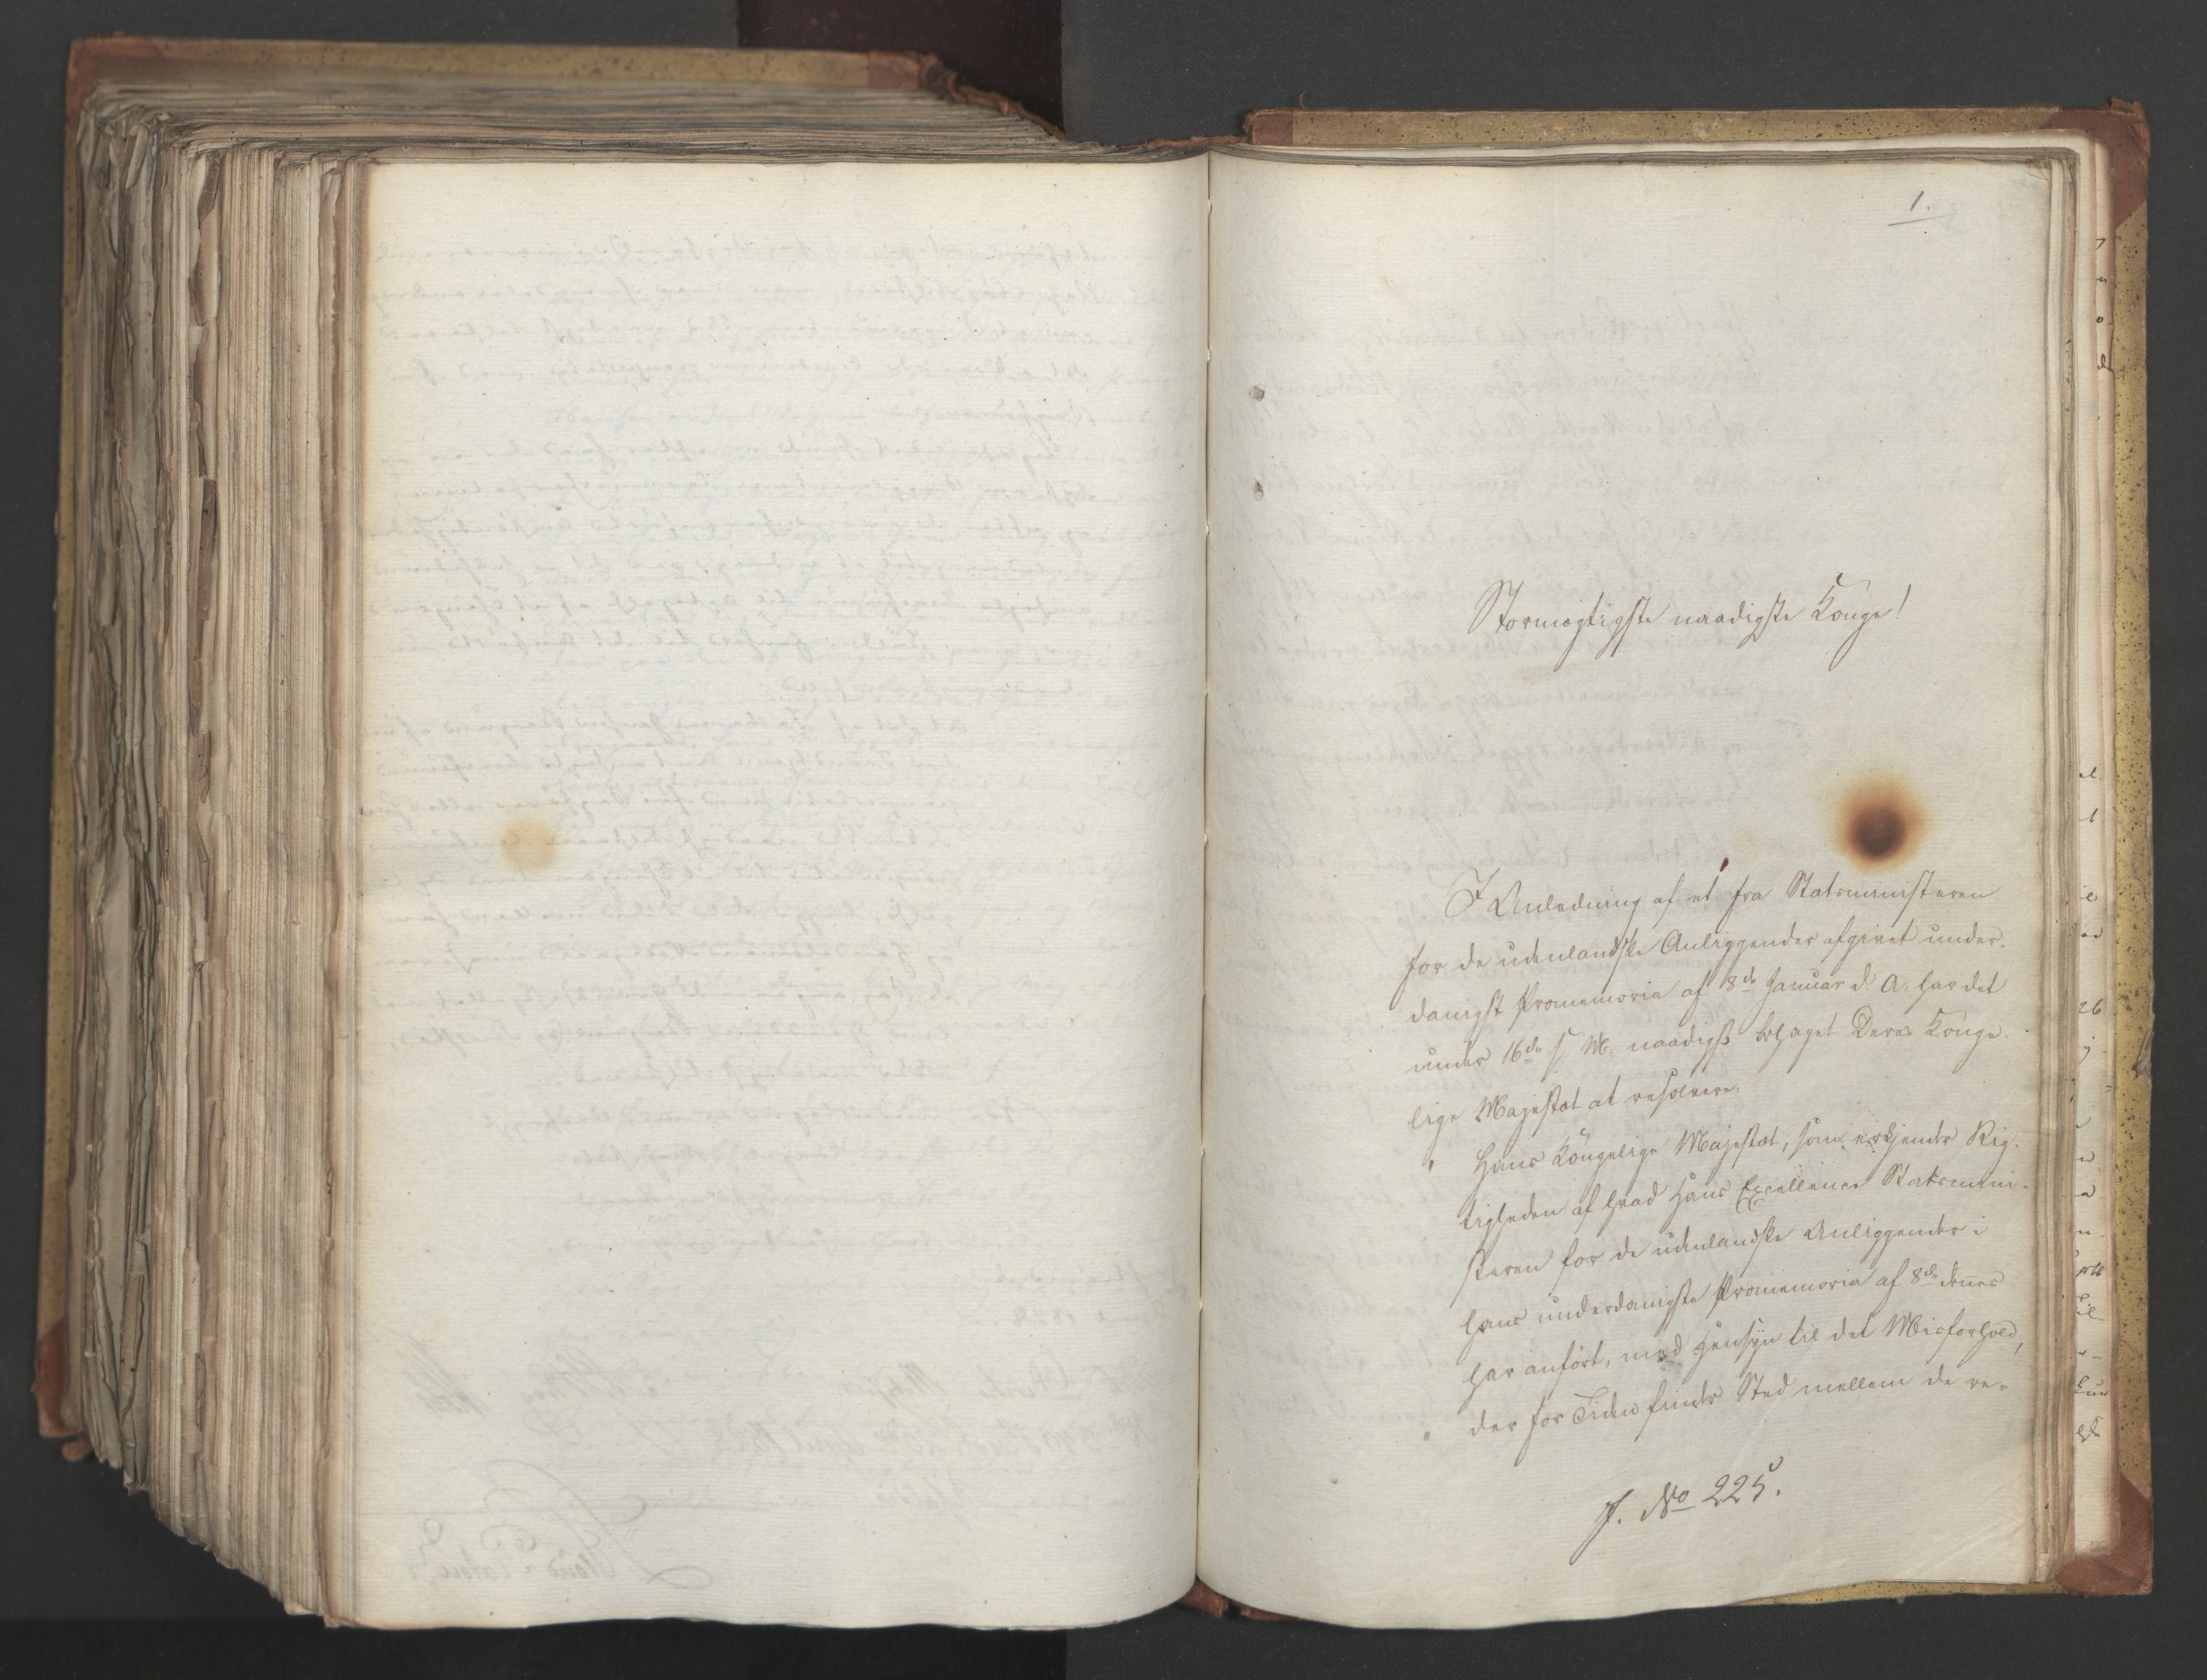 1.
Stormægtigste naadigste Konge!
I Anledning af et fra Statsministeren
for de udenlandske Anliggender afgivet under-
danigst Promemoria af 8de Januar d. A. har det
under 16de s. M. naadigst behaget Deres Konge-
lige Majestæt at resolvere:
" Hans Kongelige Majestæt, som erkjender Rig-
tigheden af hvad Hans Excellence Statsmini-
steren for de udenlandske Anliggender i
hans underdanigste Promemoria af 8de dennes
har anført, med Hensyn til det Misforhold,
" der for Tiden finder Sted mellem de re-
J. No 225.